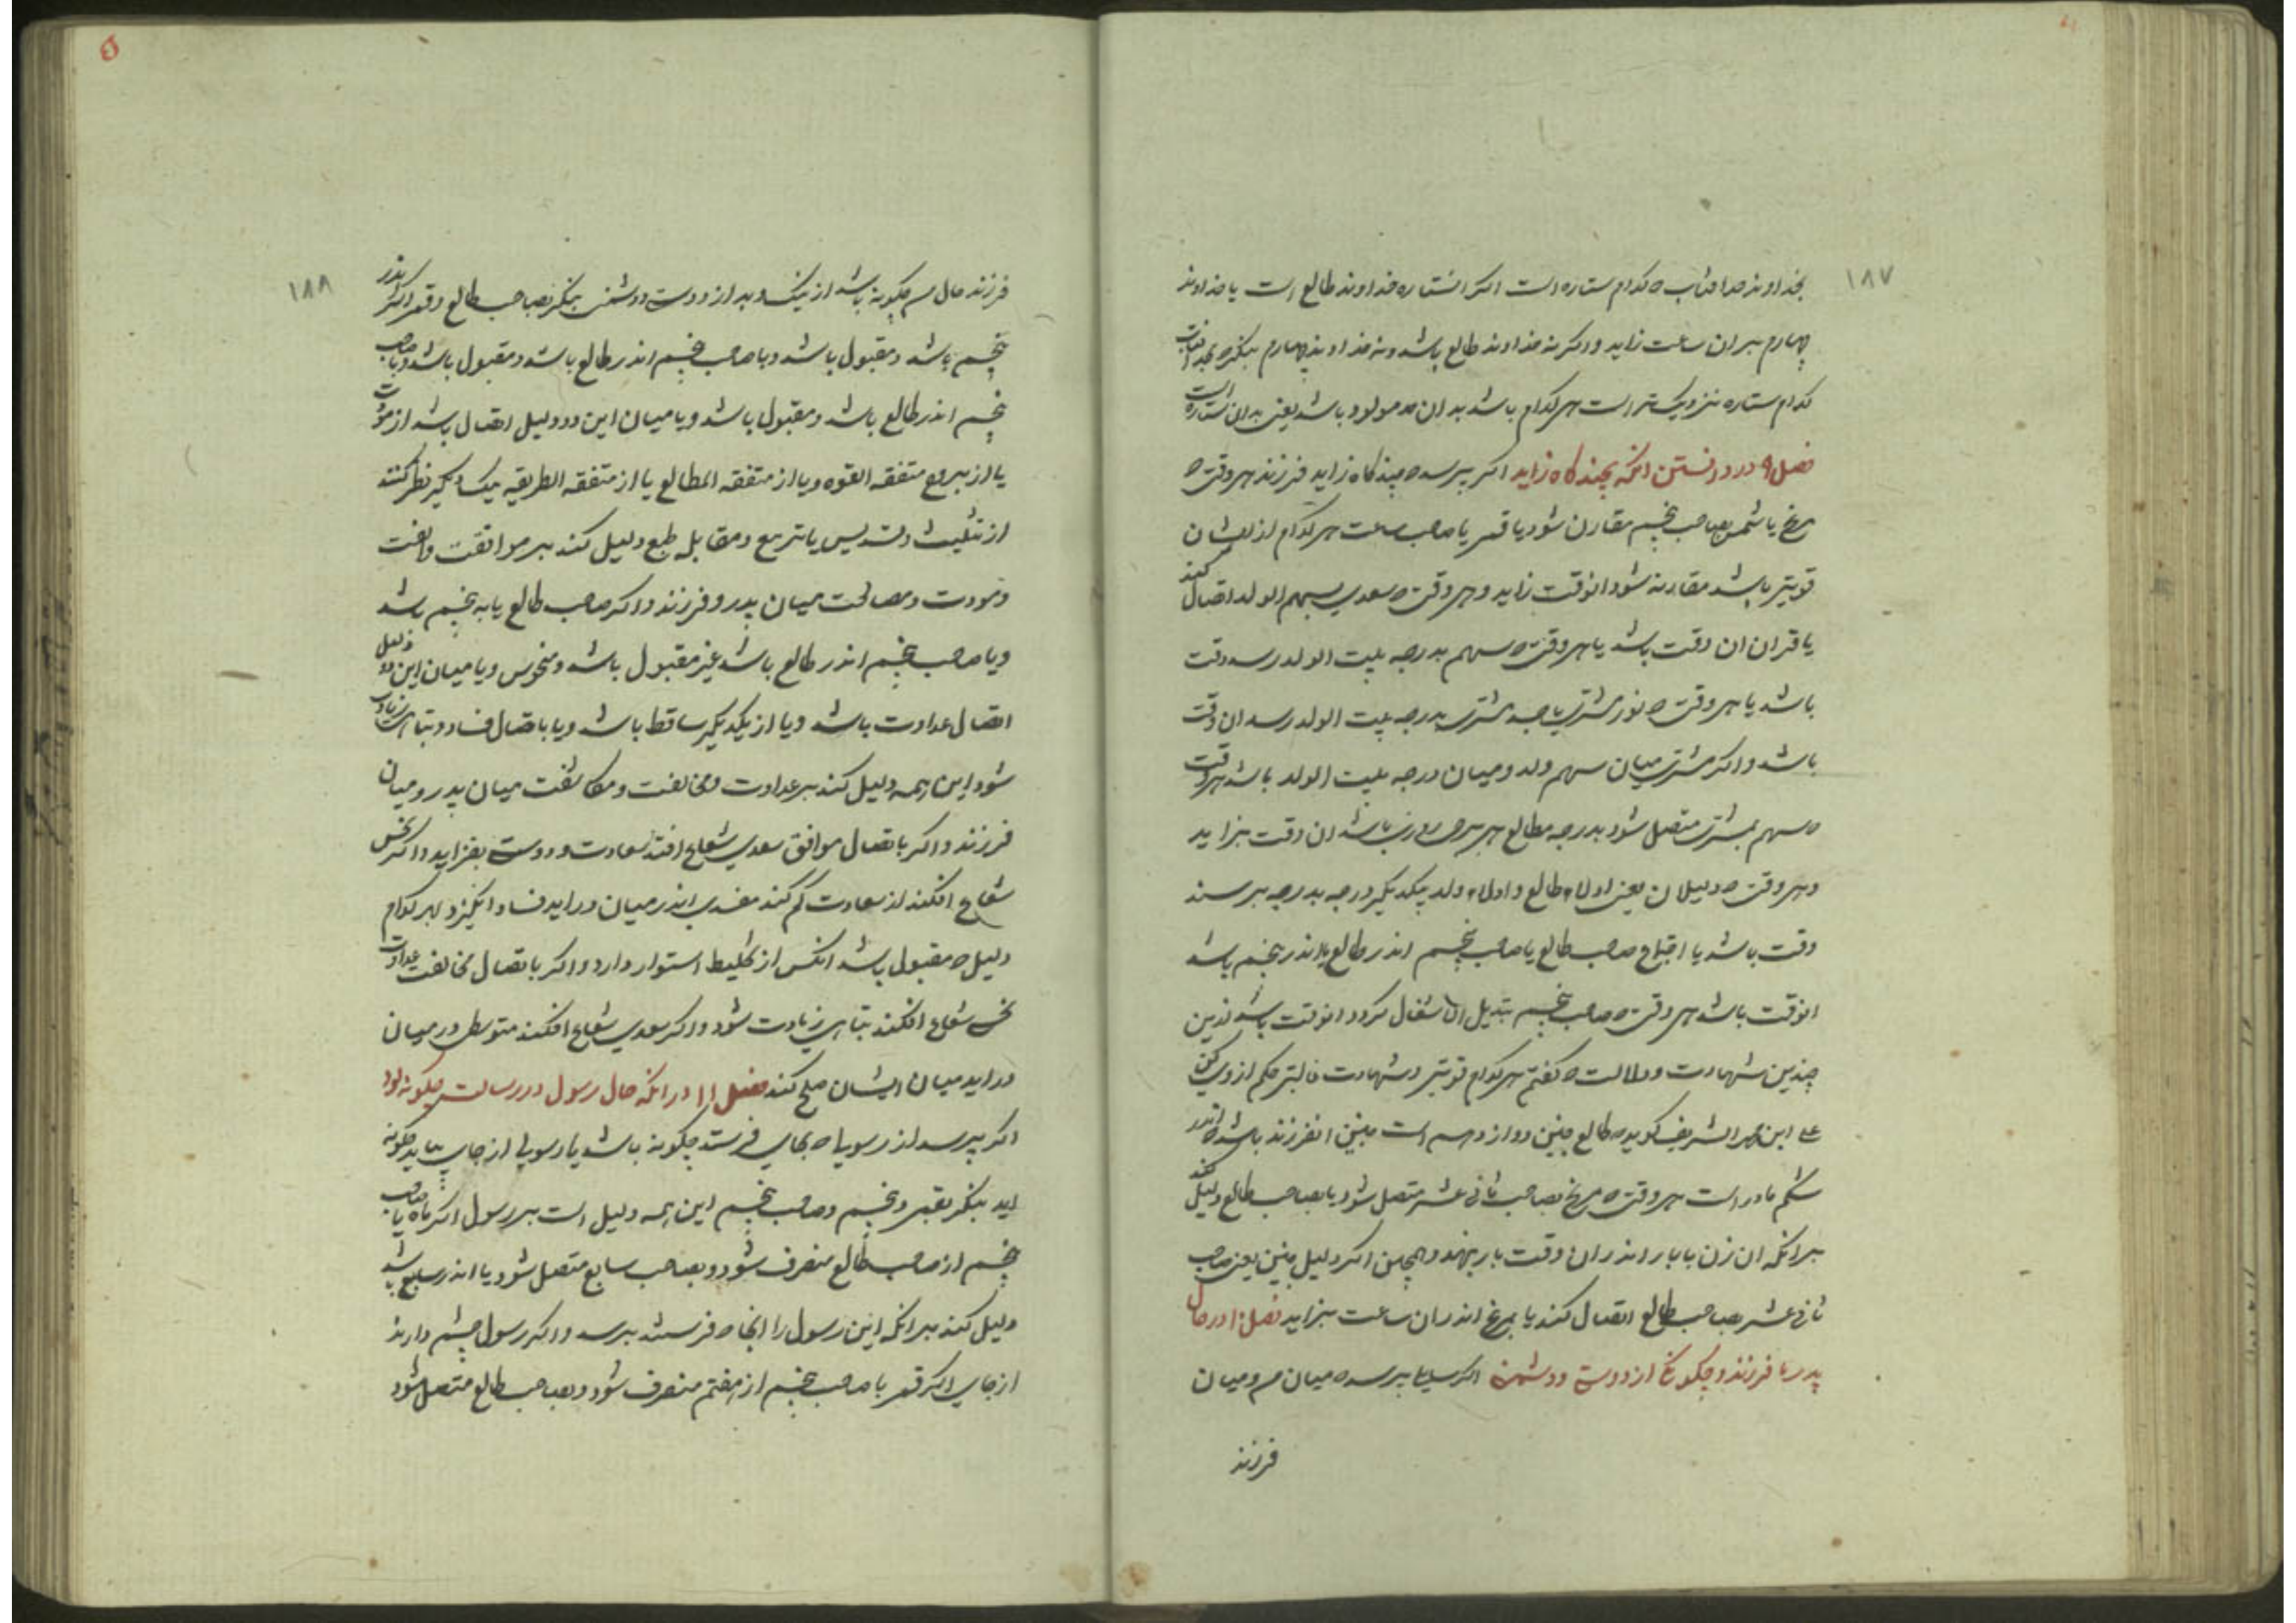 ۱۸۷
بخداوند حد افتاب که کدام ستاره است اکر انستاره خداوند طالع است یا خداوند
چهارم بران ساعت زاید و اکر نه خداوند طالع باشد و نه خداوند چهارم بنکر که بحد افتاب
کدام ستاره نزدیکتر است هر کدام باشد بدان حد مولود باشد یعنی بدان ستاره است
فصل ۹ در دانستن انکه بچند کاه زاید اکر پرسد که بچند کاه زاید فرزند هر وقت که
مریخ یا شمس بصاحب پنجم مقارن شود یا قمر یا صاحب ساعت هر کدام از ایشان
قویتر باشد مقارنه شود انوقت زاید و هر وقت که سعدی بسهم الولد اتصال کند
یا قران ان وقت باشد یا هر وقت که سهم بدرجه بیت الولد رسد وقت
باشد یا هر وقت که نور مشتری یا جسد مشتری بدرجه بیت الولد رسد ان وقت
باشد و اکر مشتری میان سهم ولد و میان درجه بیت الولد باشد هر وقت
که سهم بمشتری متصل شود بدرجه مطالع هر برجی روزی باشد ان وقت بزاید
و هر وقت که دلیلان یعنی ادلاء طالع و ادلاء ولد بیکدیکر درجه بدرجه برسند
وقت باشد یا اجتماع صاحب طالع با صاحب پنجم اندر طالع یا اندر پنجم باشد
انوقت باشد هر وقت که صاحب پنجم تبدیل الاشغال کردد انوقت باشد از این
چندین شهادت و دلالت که کفتم هر کدام قویتر و شهادت غالبتر حکم از وی کن
علی ابن الشریف کوید که طالع جنین دوازدهم است جنین انفرزند باشد که اندر
شکم مادر است هر وقت که مریخ بصاحب ثانی عشر متصل شود یا بصاحب طالع دلیل کند
برانکه ان زن بابار اندر ان وقت بار بنهد و همچنین اکر دلیل جنین یعنی صاحب
ثانی عشر بصاحب طالع اتصال کند یا بمریخ اندران ساعت بزاید فصل ۱۰ در حال
پدر با فرزند و چکونکی از دوستی و دشمنی اکر سایلی پرسد که میان من و میان
فرزند
۱۸۸
فرزند حال من چکونه باشد از نیک و بد از دوستی و دشمنی بنکر بصاحب طالع و قمر اکر اندر
پنجم باشد و مقبول باشد و با صاحب پنجم اندر طالع باشد و مقبول باشد و یا صاحب
پنجم اندر طالع باشد و مقبول باشد و یا میان این دو دلیل اتصال باشد از مودت
یا از بروج متفقه القوه و یا از متفقه المطالع یا از متفقه الطریقه بیکدیکر نظر کنند
از تثلیث و تسدیس یا تربیع و مقابله طبع دلیل کند بر موافقت و الفت
و مودت و مصالحت میان پدر و فرزند و اکر صاحب طالع یا به پنجم باشد
و یا صاحب پنجم اندر طالع باشد غیر مقبول باشد و منحوس و یا میان این دو دلیل
اتصال عداوت باشد و یا از یکدیکر ساقط باشد و یا باتصال فساد و تباهی زیادت
شود این همه دلیل کند بر عداوت و مخالفت و مکاشفت میان پدر و میان
فرزند و اکر باتصال موافق سعدی شعاع افکند سعادت و دوستی بفزاید و اکر نحس
شعاع افکند از سعادت کم کند مفسدی اندر میان دراید فساد انکیزد بهر کدام
دلیل که مقبول باشد انکس از تخلیط استوار دارد و اکر باتصال مخالفت عداوت
نحس شعاع افکند تباهی زیادت شود و اکر سعدی شعاع افکند متوسطی در میان
دراید میان ایشان صلح کند فصل ۱۱ در انکه حال رسول در رسالت چکونه بود
اکر پرسد از رسولی که بجایی فرستد چکونه باشد یا رسولی از جایی بیاید چکونه
اید بنکر بقمر و پنجم و صاحب پنجم این همه دلیل است بر رسول اکر ماه یا صاحب
پنجم از صاحب طالع منصرف شود و بصاحب سابع متصل شود یا اندر سابع باشد
دلیل کند برانکه این رسول را انجا که فرستند برسد و اکر رسول چشم دارند
از جایی اکر قمر یا صاحب پنجم از هفتم منصرف شود و بصاحب طالع متصل شود